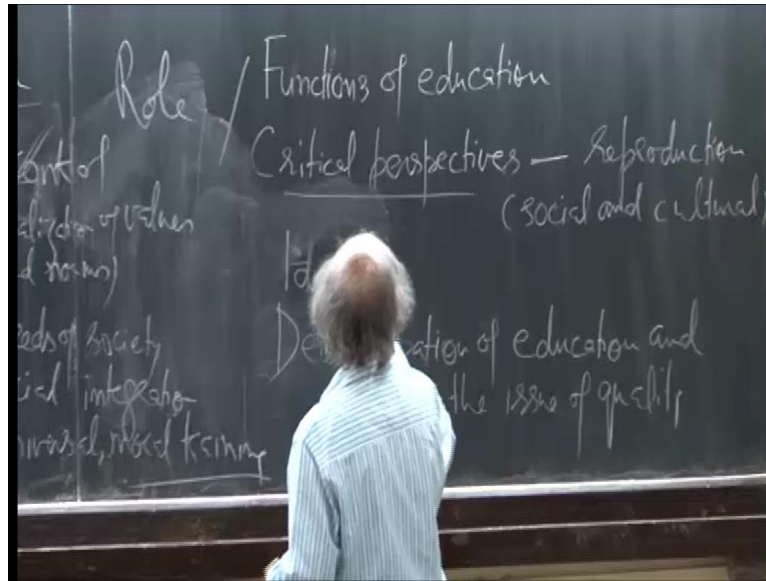 Role / Functions of education
Critical perspectives — Reproduction
(social and cultural)
Id
De ation of education and
the issue of quality
ontrol
alization of values
d norms)
eeds of society
cial integration
niversal, moral training